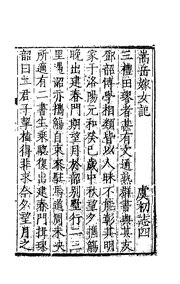 嵩岳嫁女記
虞初志四
三禮田璆者甚有文通熟群書與其友
鄧韶博學相類皆以人昧不能彰其明
家于洛陽元和癸巳歲中秋望夕攜觴
晚出建春門期望月於韶別墅行二三
里遇韶亦攜觴自東來駐馬道周未決
所適有二書生乘驄復出建春門揖璆
韶曰二君子挈榼得非求今夕望月之